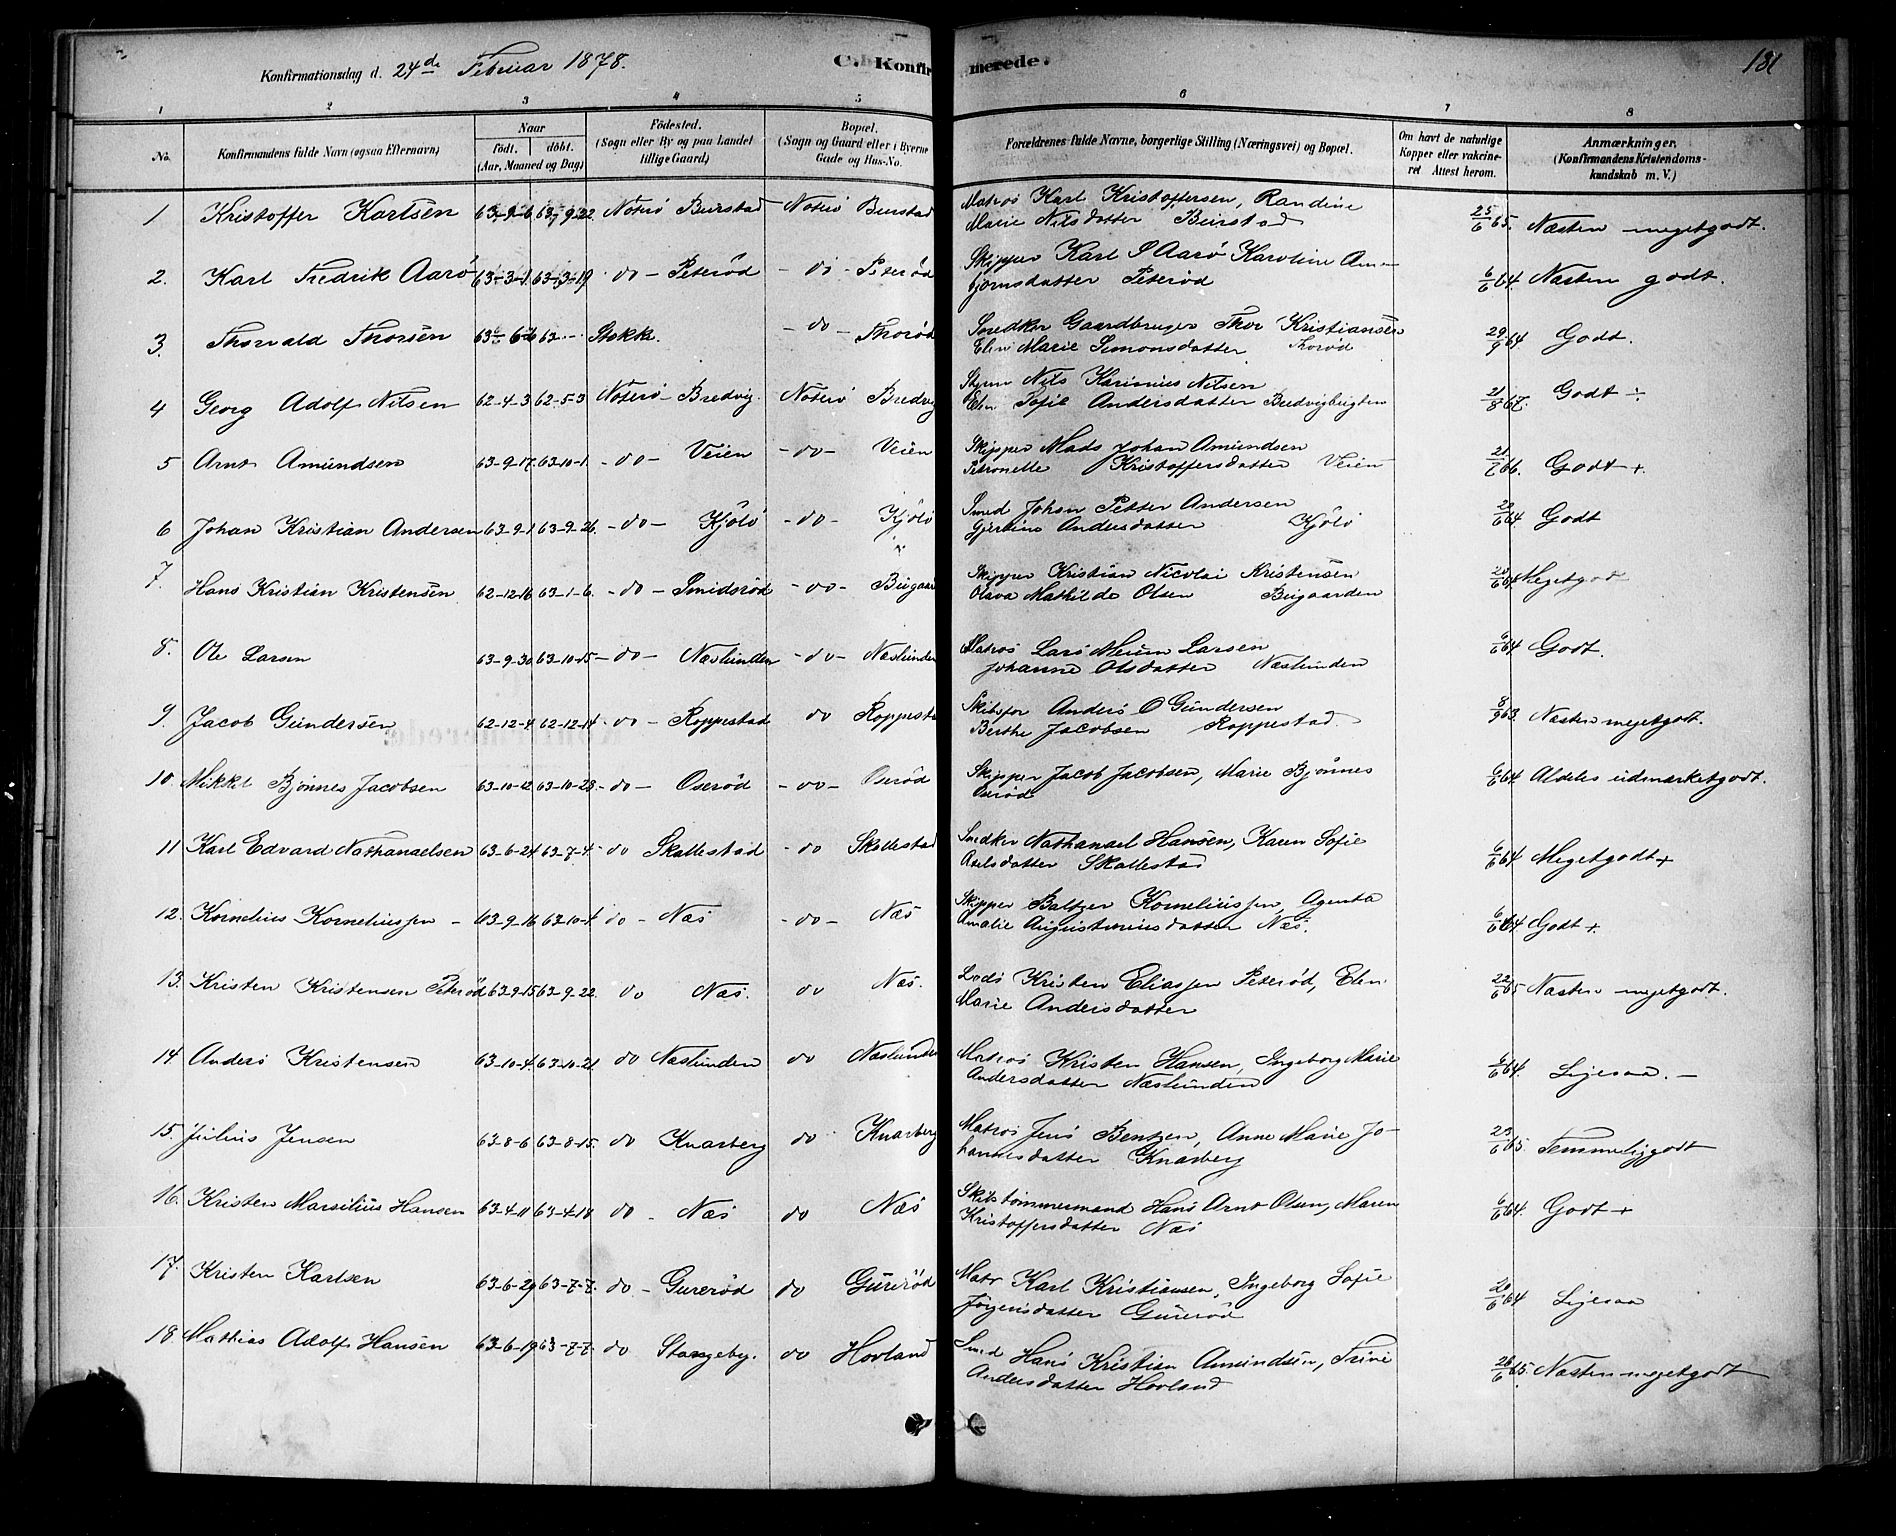 Konfirmationsdag d. 24de Februar 1878.
C. Konfirmerede.
181
1 2 3 4 5 6 7 8
No. Konfirmandens fulde Navn (ogsaa Efternavn) Naar födt. döbt. (Aar, Maaned og Dag) Födested. (Sogn eller By og paa Landet tillige Gaard) Bopæl. (Sogn og Gaard eller i Byerne Gade og Hus-No. Forældrenes fulde Navne, borgerlige Stilling (Næringsvei) og Bopæl. Om havt de naturlige Kopper eller vakcineret Attest herom. Anmærkninger. (Konfirmandens Kristendomskundskab m. V.)
1 Kristoffer Karlsen 63-9-6 63-9-22 Nøterø Buerstad Nøterø Buerstad Matros Karl Kristoffersen, Randine
Marie Nilsdatter Buerstad 25/6 65. Næsten megetgodt.
2. Karl Fredrik Aarø 63-3-1 63-3-19 - do - Peterød - do - Peterød Skipper Karl Aarø Karoline Arnbjørnsdatter Peterød 6/6 64. Næsten godt.
3. Thorvald Thorsen 63-6-26 63 Stokke. - do - Thorød Snedker Gaardbruger Thor Kristiansen
Elen Marie Simonsdatter Thorød 29/9 64. Godt.
4 Georg Adolf Nilsen 62-4-3 62-5-3 Nøterø Bredvig. Nøterø Bredvig Nils Nilsen
Elen Sofie Andersdatter Bredvigbugten 21/8 67. Godt ÷
5 Arnt Amundsen 63-9-17 63-10-1 - do - Veien - do - Veien Skipper Mads Johan Amundsen
Petronelle Kristoffersdatter Veien 66. Godt +.
6 Johan Kristian Andersen 63-9-1 63-9-26. - do - Kjølø - do - Kjølø Smed Johan Petter Andersen
Gjertine Andersdatter Kjølø 64. Godt
7. Hans Kristian Kristensen 62-12-16 63-1-6. - do - Smidsrød - do - Skipper Kristian Nicolai Kristensen
Olava Mathilde Olsen 64 Megetgodt
8. Ole Larsen 63-9-30 63-10-15 - do - Næslunden - do - Næslunden Matros Lars Larsen
Johanne Olsdatter Næslunden 6/6 64 Godt.
9. Jacob Gundersen 62-12-4 62-12-14 - do - Roppestad do Roppestad Anders O Gundersen
Berthe Jacobsen Roppestad 8/9 63. Næsten megetgodt.
10. Mikkel Bjønnes Jacobsen 63-10-12 63-10-28 - do - Oserød - do - Oserød Skipper Jacob Jacobsen, Marie Bjønnes
Oserød 6/6 64 Aldeles udmærketgodt.
11 Karl Edvard Nathanaelsen 63-6-24 63-7-4 - do Skallestad - do Skallestad Snedker Nathanael Hansen, Karen Sofie
Axelsdatter Skallestad 6/6 64 Megetgodt +
12. Kornelius Korneliussen - 63-9-16 63-10-4 do - Næs - do - Næs Skipper Baltzer Korneliussen, Agenta
Amalie Augustinusdatter Næs. 6/6 64 Godt +.
13. Kristen Kristensen Peterød 63-9-15 63-9-22. do Næs. do Næs. Lods Kristen Eliassen Peterød, Elen
Marie Andersdatter 22/6 65 Næsten megetgodt.
14 Anders Kristensen 63-10-4 63-10-21 do Næslunden do Næslunden Matros Kristen Hansen, Ingeborg Marie
Andersdatter Næslunden 6/6 64. Ligesaa. -
15. Julius Jensen 63-8-6 63-8-15. do Knarberg do Knarberg Matros Jens Bentzen, Anne Marie Johannesdatter Knarberg 65. Temmeliggodt
16. Kristen Marsilius Hansen 63-4-11 63-4-18 do - Næs do Næs Skibstømmermand Hans Arnt Olsen, Maren
Kristoffersdatter Næs 6/6 64. Godt +
17. Kristen Karlsen 63-6-29 63-7-7. do - Gurerød do Gurerød Matr Karl Kristiansen, Ingeborg Sofie
Jörgensdatter Gurerød 20/6 64 Ligesaa
18 Mathias Adolf Hansen 63-6-19 63-7-7. do Stangeby. do Hovland Smed Hans Kristian Amundsen, Trine
Andersdatter Hovland 26/6 65. Næsten megetgodt